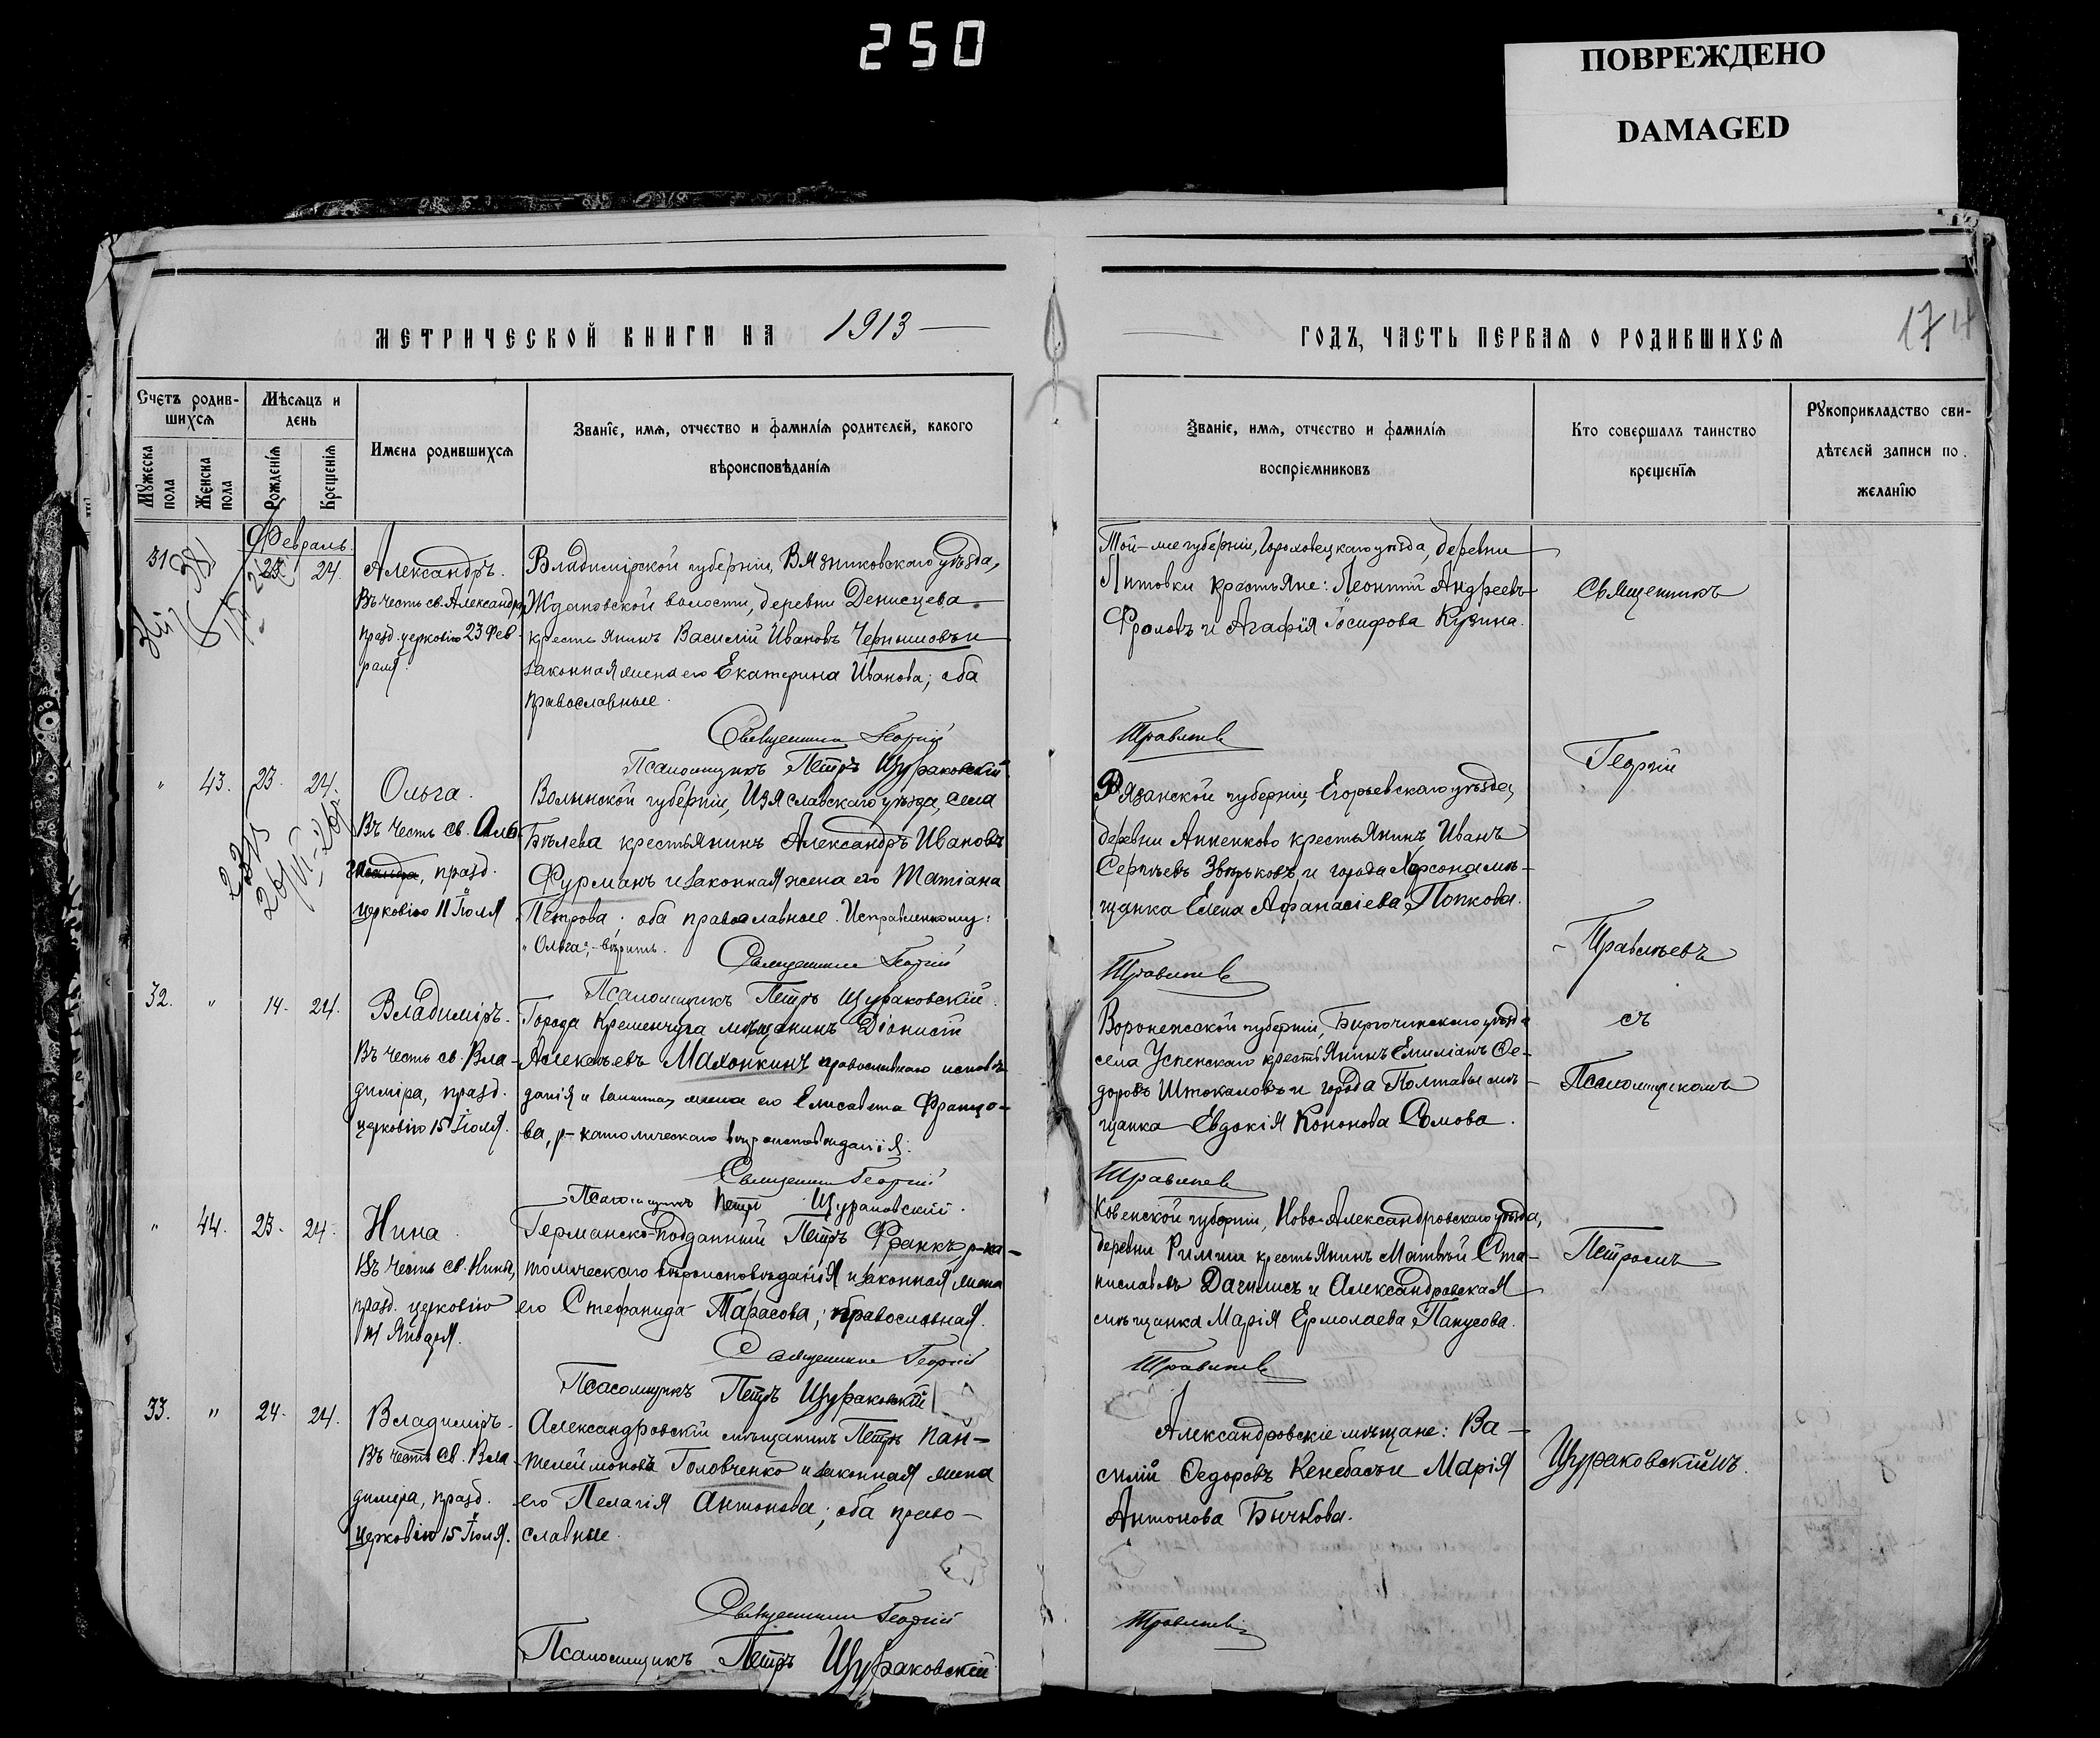 250
ПОВРЕЖДЕНО
DAMAGED
МЕТРИЧЕСКОЙ КНИГИ НА 1913
ГОДЪ, ЧАСТЬ ПЕРВАЯ О РОДИВШИХСЯ
174
Счетъ родив-
шихся
Мѣсяцъ и
день
Мужеска
пола
Женска
пола
Рожденія
Крещенія
Имена родившихся
Званіе, имя, отчество и фамилія родителей, какого
вѣроисповѣданія
Званіе, имя, отчество и фамилія
воспріемниковъ
Кто совершалъ таинство
крещенія
Рукоприкладство сви-
дѣтелей записи по
желанію
Февраль.
31 23. 24.
Александръ.
Въ честь св. Александра
празд. церковію 23 Фев
раля.
Владимірской губерніи, Вязниковскаго уѣзда,
Ждановской волости, деревни Денисцева
крестьянинъ Василій Ивановъ Чернышовъ и
законная жена его Екатерина Иванова; оба
православные.
Священникъ Георгій
Псаломщикъ Петръ Щураковскій
Той-же губерніи, Гороховецкаго уѣзда, деревни
Литовки крестьяне: Леонтій Андреевъ
Фроловъ и Агафія Іосифова Кузина.
Правитев
" 43. 23. 24.
Ольга.
Въ честь св.
празд.
церковію 11 Іюля
Волынской губерніи, Изяславскаго уѣзда, села
Бѣлева крестьянинъ Александръ Ивановъ
Фурманъ и законная жена его Татіана
Петрова; оба православные. Исправленному:
"Ольга", -вѣрить.
Священникъ Георгій
Псаломщикъ Петръ Щураковскій.
Рязанской губерніи, Егорьевскаго уѣзда,
деревни Анненково крестьянинъ Иванъ
Сергѣевъ Звѣрьковъ и города Херсона мѣ-
щанка Елена Афанасіева Попкова.
32. " 14. 24.
Владиміръ.
Въ честь св. Вла-
диміра, празд.
церковію 15 Іюля.
Города Кременчуга мѣщанинъ Діонисій
Алексѣевъ Махонкинъ православнаго исповѣ-
данія и законная жена его Елисавета Францо-
ва, р-католическаго вѣроисповѣданія.
Священникъ Георгій
Псаломщикъ Петръ Щураковскій.
Воронежской губерніи, Бирюченскаго уѣзда
села Успенскаго крестьянинъ Емиліанъ Ѳе-
доровъ Штокаловъ и города Полтавы мѣ-
щанка Евдокія Кононова Сомова.
" 44. 23. 24.
Нина.
Въ честь св. Нины,
празд. церковію
14 Января.
Германско-подданный Петръ Франкъ р-ка-
толическаго вѣроисповѣданія и законная жена
его Стефанида Тарасова; православная.
Священникъ Георгій
Псаломщикъ Петръ Щураковскій
Ковенской губерніи, Ново-Александровскаго уѣзда,
деревни Римши крестьянинъ Матвѣй Ста-
ниславовъ Дачилисъ и Александровская
мѣщанка Марія Ермолаева Панусова.
33. " 24. 24.
Владиміръ.
Въ честь св. Вла-
диміра, празд.
церковію 15 Іюля.
Александровскій мѣщанинъ Петръ Пан-
телеймоновъ Головченко и законная жена
его Пелагія Антонова; оба право-
славные.
Священникъ Георгій
Псаломщикъ Петръ Щураковскій
Александровскіе мѣщане: Ва-
силій Ѳедоровъ Кенебасъ и Марія
Антонова Бычкова.
Священникъ
Георгій
съ
Псаломщикомъ
Петромъ
Щураковскимъ.